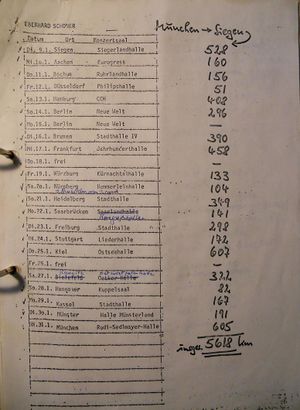 EBERHARD SCHOENER
München → Siegen
Datum Ort Konzertsaal
Di. 9.1. Siegen Siegerlandhalle 528
Mi.10.1. Aachen Europress 160
Do.11.1. Bochum Ruhrlandhalle 156
Fr.12.1. Düsseldorf Philipshalle 51
Sa.13.1. Hamburg CCH 408
So.14.1. Berlin Neue Welt 296
Mo.15.1. Berlin Neue Welt —
Di.16.1. Bremen Stadthalle IV 390
Mi.17.1. Frankfurt Jahrhunderthalle 458
Do.18.1. frei —
Fr.19.1. Würzburg Kürnachtalhalle 133
Sa.20.1. Nürnberg Hemmerleinhalle 104
So.21.1. Heidelberg Stadthalle 349
Mo.22.1. Saarbrücken Saarlandhalle 141
Di.23.1. Freiburg Stadthalle 298
Mi.24.1. Stuttgart Liederhalle 172
Do.25.1. Kiel Ostseehalle 607
Fr.26.1. frei —
Sa.27.1. Bielefeld Oetker-Halle 322
So.28.1. Hannover Kuppelsaal 82
Mo.29.1. Kassel Stadthalle 167
Di.30.1. Münster Halle Münsterland 191
Mi.31.1. München Rudi-Sedlmayer-Halle 605
5618 km